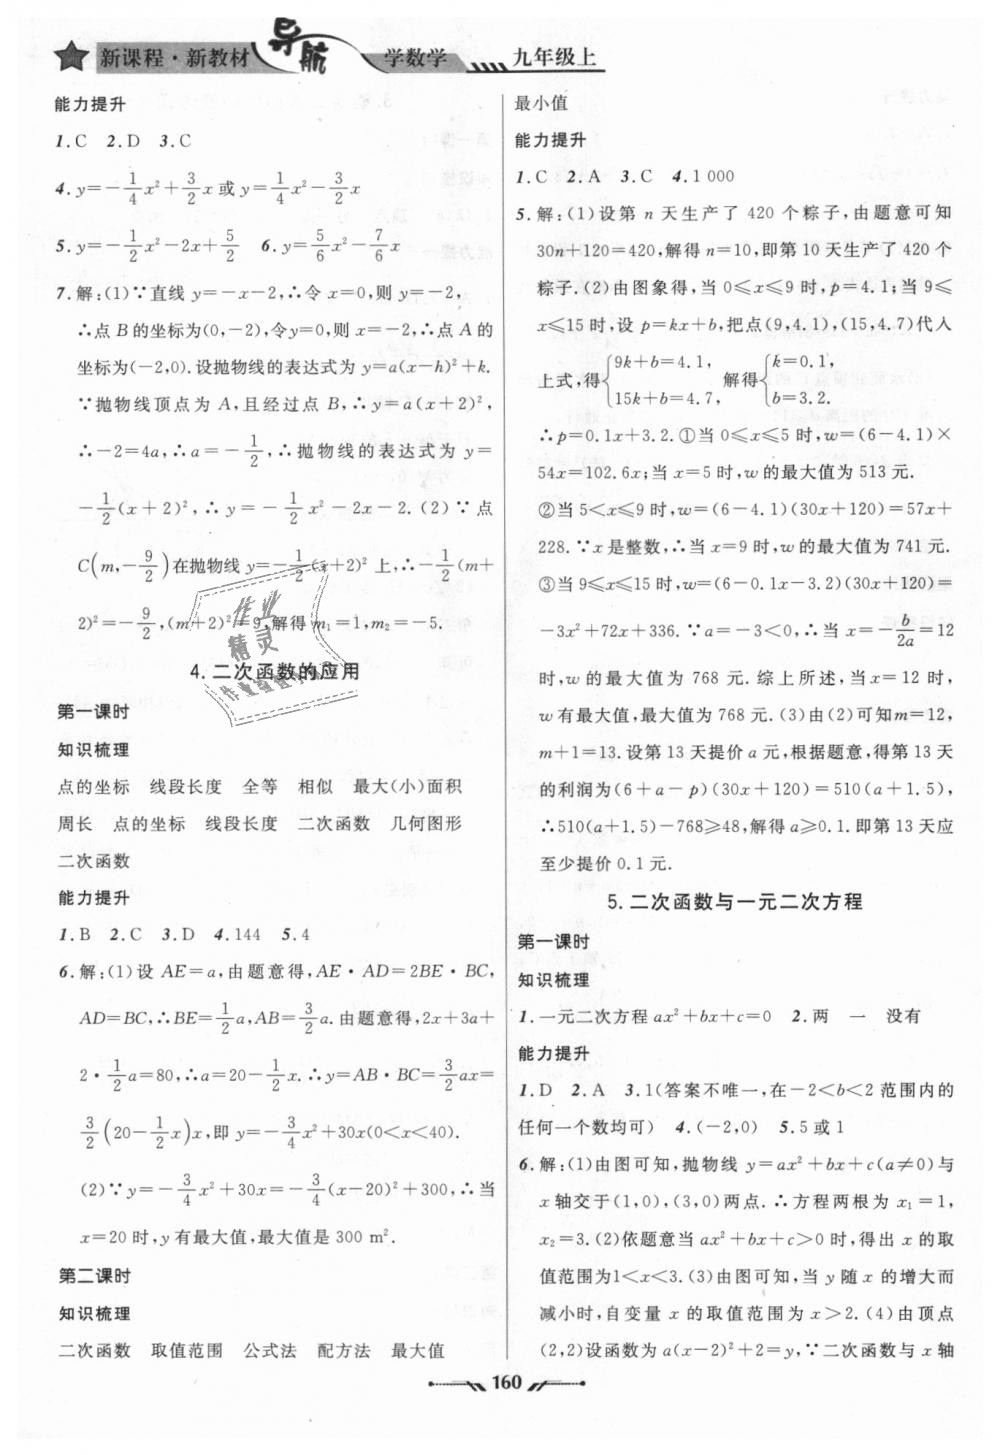 新课程·新教材 导航 学数学 九年级上
能力提升
1.C 2.D 3.C
4.y=-\frac{1}{4}x²+\frac{3}{2}x或y=\frac{1}{4}x²-\frac{3}{2}x
5.y=-\frac{1}{2}x²-2x+\frac{5}{2} 6.y=\frac{5}{6}x²-\frac{7}{6}x
7.解:(1)∵直线 y=-x-2,∴令 x=0,则 y=-2,
∴点 B 的坐标为(0,-2),令y=0,则 x=-2,∴点 A 的
坐标为(-2,0).设抛物线的表达式为 y=a(x-h)²+k.
∵抛物线顶点为 A,且经过点 B,∴y=a(x+2)²,
∴-2=4a,∴a=-\frac{1}{2},∴抛物线的表达式为 y=
-\frac{1}{2}(x+2)²,∴y=-\frac{1}{2}x²-2x-2.(2)∵点
C(m,-\frac{9}{2})在抛物线 y=-\frac{1}{2}(x+2)² 上,∴-\frac{1}{2}(m+
2)²=-\frac{9}{2},(m+2)²=9,解得 m₁=1,m₂=-5.
4.二次函数的应用
第一课时
知识梳理
点的坐标 线段长度 全等 相似 最大(小)面积
周长 点的坐标 线段长度 二次函数 几何图形
二次函数
能力提升
1.B 2.C 3.D 4.144 5.4
6.解:(1)设 AE=a,由题意得,AE·AD=2BE·BC,
AD=BC,∴BE=\frac{1}{2}a,AB=\frac{3}{2}a.由题意得,2x+3a+
2·\frac{1}{2}a=80,∴a=20-\frac{1}{2}x.∴y=AB·BC=\frac{3}{2}ax=
\frac{3}{2}(20-\frac{1}{2}x)x,即 y=-\frac{3}{4}x²+30x(0<x<40).
(2)∵y=-\frac{3}{4}x²+30x=-\frac{3}{4}(x-20)²+300,∴当
x=20 时,y 有最大值,最大值是 300 m².
第二课时
知识梳理
二次函数 取值范围 公式法 配方法 最大值
最小值
能力提升
1.C 2.A 3.C 4.1 000
5.解:(1)设第 n 天生产了 420 个粽子,由题意可知
30n+120=420,解得 n=10,即第 10 天生产了 420 个
粽子.(2)由图象得,当 0≤x≤9 时,p=4.1;当 9≤
x≤15 时,设 p=kx+b,把点(9,4.1),(15,4.7)代人
上式,得{9k+b=4.1, 15k+b=4.7, 解得{k=0.1, b=3.2.
∴p=0.1x+3.2.①当 0≤x≤5 时,w=(6-4.1)×
54x=102.6x;当 x=5 时,w 的最大值为 513 元.
②当 5<x≤9 时,w=(6-4.1)(30x+120)=57x+
228.∵x 是整数,∴当 x=9 时,w 的最大值为 741 元.
③当 9≤x≤15 时,w=(6-0.1x-3.2)(30x+120)=
-3x²+72x+336.∵a=-3<0,∴当 x=-\frac{b}{2a}=12
时,w 的最大值为 768 元.综上所述,当 x=12 时,
w 有最大值,最大值为 768 元.(3)由(2)可知m=12,
m+1=13.设第 13 天提价 a 元,根据题意,得第 13 天
的利润为(6+a-p)(30x+120)=510(a+1.5),
∴510(a+1.5)-768≥48,解得 a≥0.1.即第 13 天应
至少提价 0.1 元.
5.二次函数与一元二次方程
第一课时
知识梳理
1.一元二次方程 ax²+bx+c=0 2.两 一 没有
能力提升
1.D 2.A 3.1(答案不唯一,在-2<b<2 范围内的
任何一个数均可) 4.(-2,0) 5.5 或 1
6.解:(1)由图可知,抛物线 y=ax²+bx+c(a≠0)与
x 轴交于(1,0),(3,0)两点.∴方程两根为 x₁=1,
x₂=3.(2)依题意当 ax²+bx+c>0 时,得出 x 的取
值范围为1<x<3.(3)由图可知,当 y 随 x 的增大而
减小时,自变量 x 的取值范围为 x>2.(4)由顶点
(2,2)设函数为 a(x-2)²+2=y,∵二次函数与 x 轴
160
作业
精灵